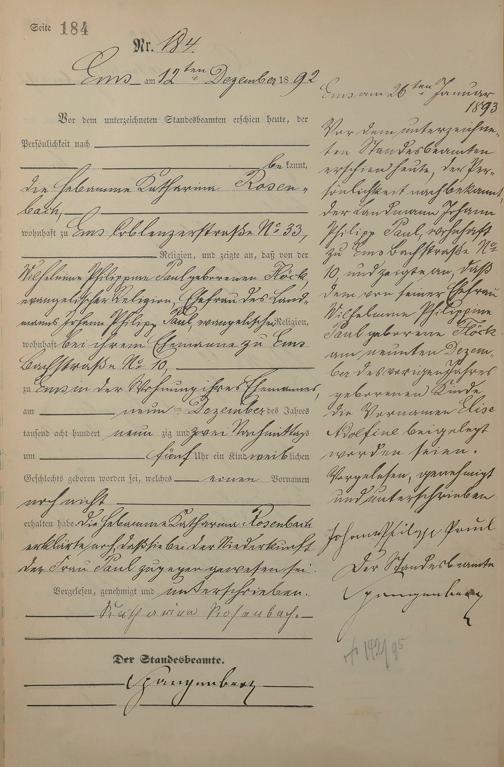 Seite 184
Nr. 184.
Ems am 12ten Dezember 1892
Vor dem unterzeichneten Standesbeamten erschien heute, der
Persönlichkeit nach
bekannt,
die Hebamme Katharina Rosen-
bach,
wohnhaft zu Ems Coblenzerstraße No 33,
Religion, und zeigte an, daß von der
Wilhelmine Philippine Paul geborenen Flöck,
evangelischer Religion, Ehefrau des Land-
manns Johann Philipp Paul, evangelischer Religion,
wohnhaft bei ihrem Ehemanne zu Ems
Bachstraße No 10,
zu Ems in der Wohnung ihres Ehemannes,
am neunten Dezember des Jahres
tausend acht hundert neunzig und zwei Nachmittags
um fünf Uhr ein Kind weiblichen
Geschlechts geboren worden sei, welches einen Vornamen
noch nicht
erhalten habe. Die Hebamme Katharina Rosenbach
erklärte noch, daß sie bei der Niederkunft
der Frau Paul zugegen gewesen sei.
Vorgelesen, genehmigt und unterschrieben.
Katharina Rosenbach.
Der Standesbeamte.
Spangenberg
Ems am 26ten Januar
1893
Vor dem unterzeichne-
ten Standesbeamten
erschien heute, der Per-
sönlichkeit nach bekannt,
der Landmann Johann
Philipp Paul, wohnhaft
zu Ems Bachstraße No
10 und zeigte an, daß
dem von seiner Ehefrau
Wilhelmine Philippine
Paul geborene Flöck
am neunten Dezem-
ber des vorigen Jahres
geborenen Kinde
die Vornamen Elise
Adolfine beigelegt
worden seien.
Vorgelesen, genehmigt
und unterschrieben
Johann Philipp Paul
Der Standesbeamte
Spangenberg